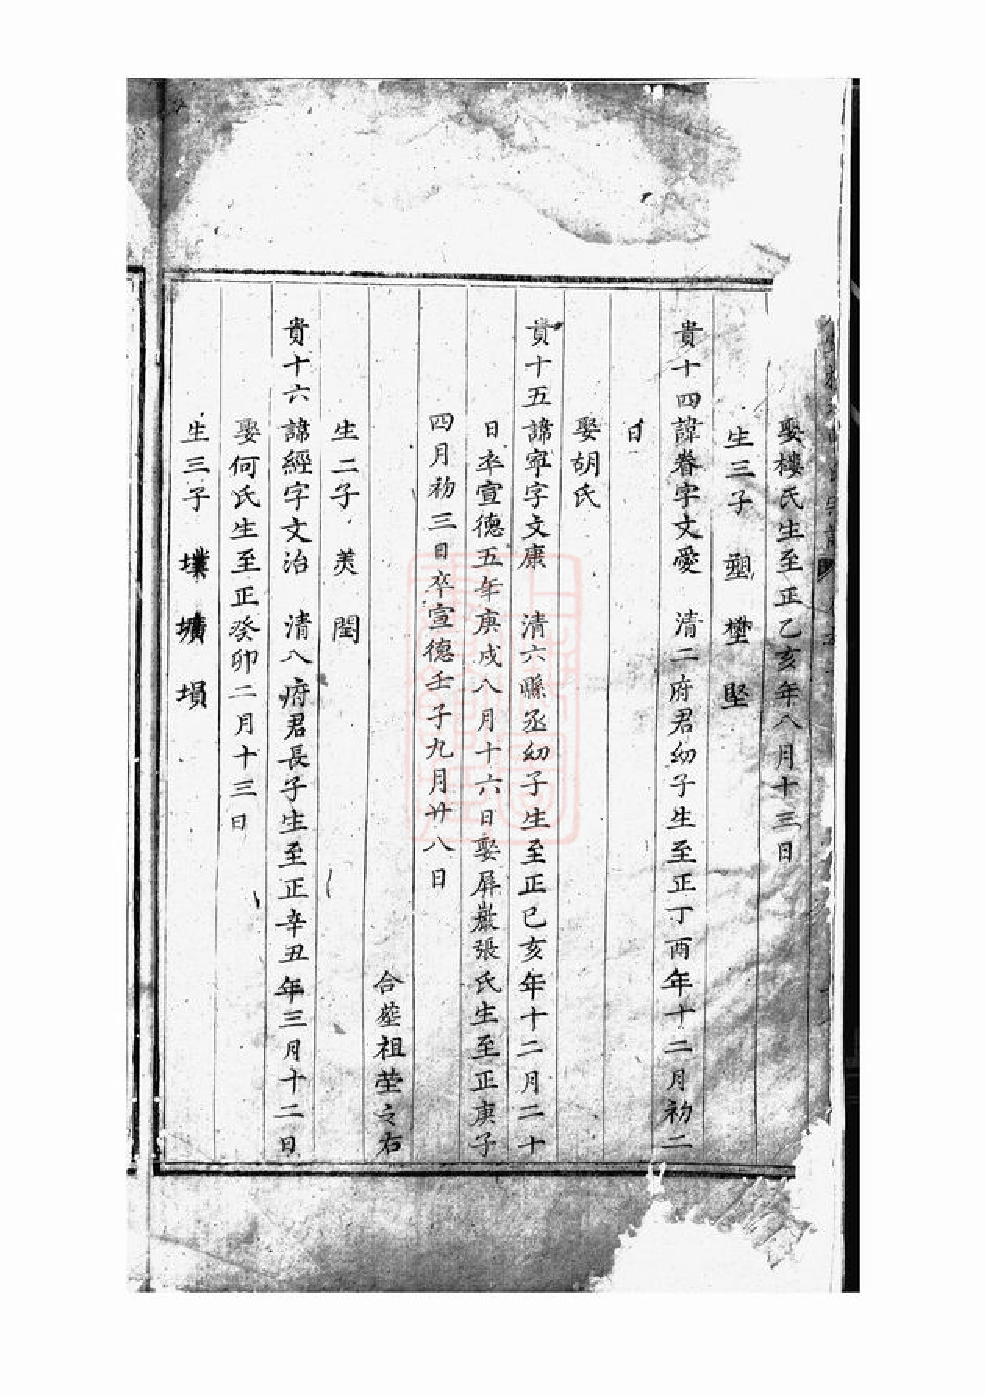 娶樓氏生至正乙亥年八月十三日
生三子 塑 埜 堅
貴十四諱眷字文愛 清二府君幼子生至正丁酉年十二月初二
日
娶胡氏
貴十五諱寧字文康 清六縣丞幼子生至正己亥年十二月二十
日卒宣德五年庚戌八月十六日娶屏巖張氏生至正庚子
四月初三日卒宣德壬子九月廿八日
合塟祖塋之右
生二子 美 閏
貴十六諱經字文治 清八府君長子生至正辛丑年三月十二日
娶何氏生至正癸卯二月十三日
生三子 墣 壙 塤